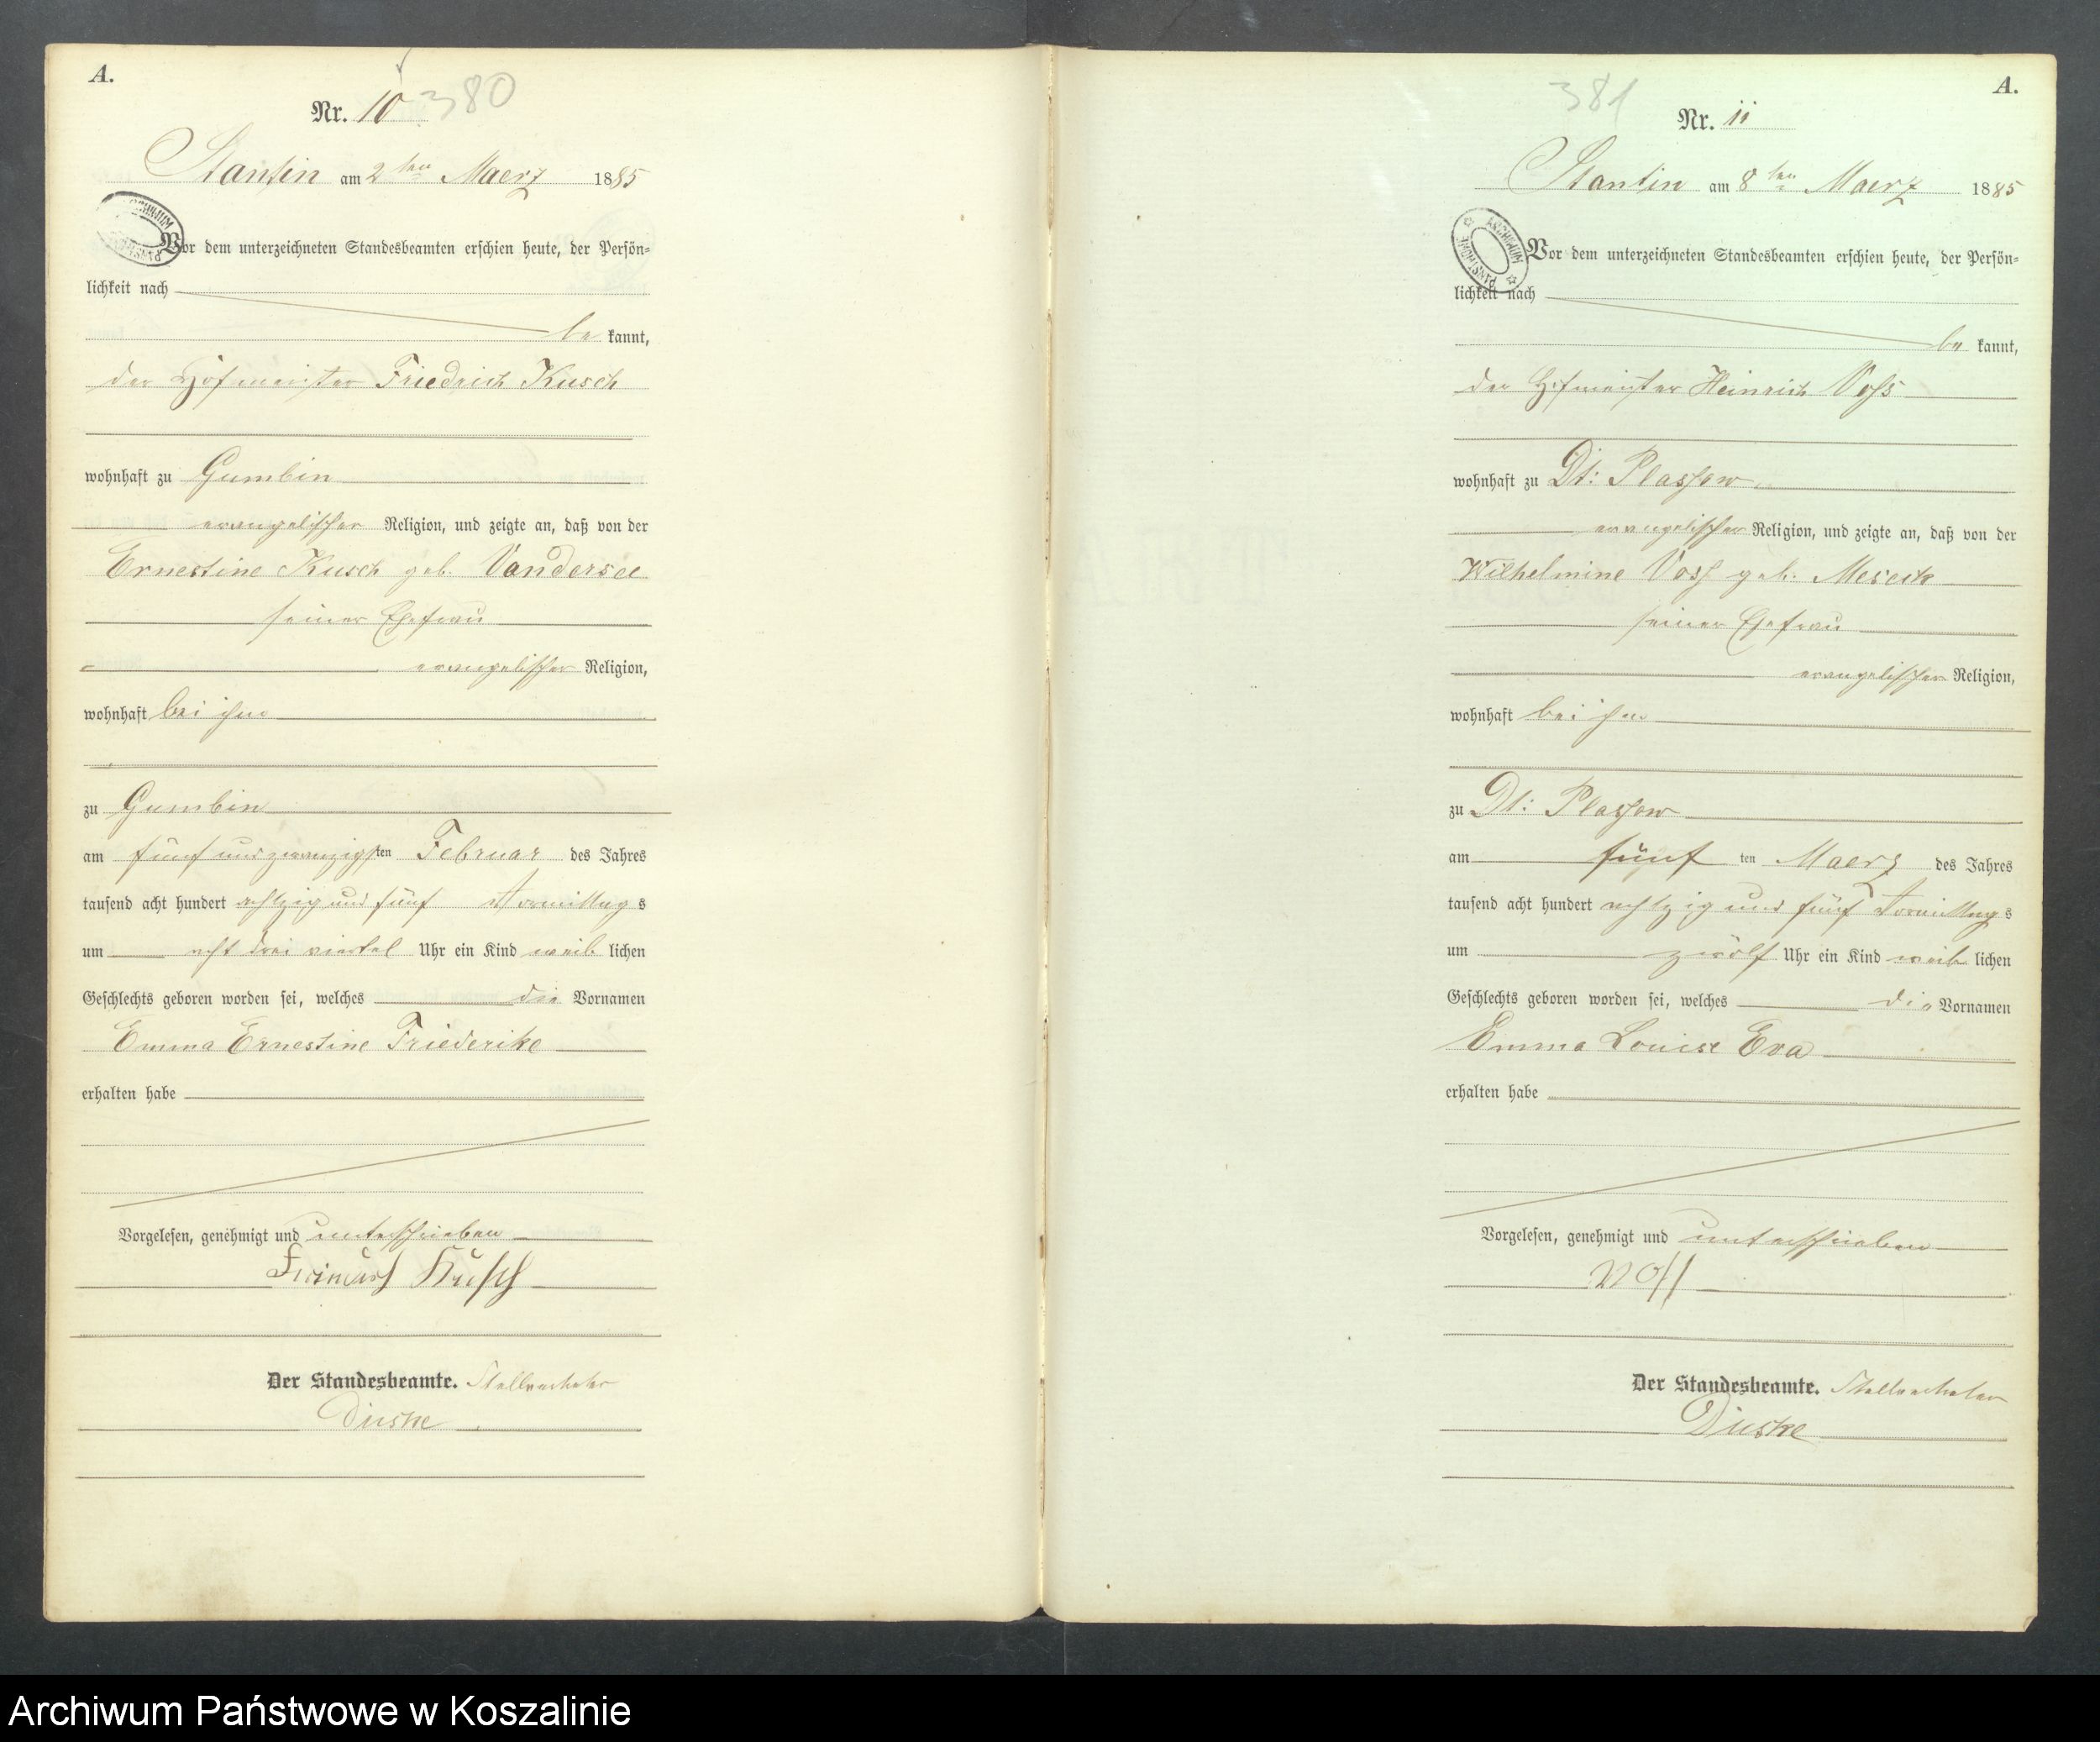 A.
Nr. 10 380
Stantin am 2ten Maerz 1885
Vor dem unterzeichneten Standesbeamten erschien heute, der Persön=
lichkeit nach
be kannt,
der Hofmeister Friedrich Kusch
wohnhaft zu Gumbin
evangelischer Religion, und zeigte an, daß von der
Ernestine Kusch geb. Vandersee
seiner Ehefrau
evangelischer Religion,
wohnhaft bei ihm
zu Gumbin
am fünf und zwanzigsten Februar des Jahres
tausend acht hundert achtzig und fünf Vormittags
um acht drei viertel Uhr ein Kind weib lichen
Geschlechts geboren worden sei, welches die Vornamen
Emma Ernestine Friederike
erhalten habe
Vorgelesen, genehmigt und unterschrieben
Kusch
Der Standesbeamte. Stellvertreter
Duske
A.
381
Nr. 11
Stantin am 8ten Maerz 1885
ARCHIWUM PAŃSTWOWE
Vor dem unterzeichneten Standesbeamten erschien heute, der Persön=
lichkeit nach
be kannt,
der Hofmeister Heinrich Voss
wohnhaft zu Dt: Plassow
evangelischer Religion, und zeigte an, daß von der
Wilhelmine Voss geb. Meseck
seiner Ehefrau
evangelischer Religion,
wohnhaft bei ihm
zu Dt: Plassow
am fünf ten Maerz des Jahres
tausend acht hundert achtzig und fünf Vormittags
um zwölf Uhr ein Kind weib lichen
Geschlechts geboren worden sei, welches die Vornamen
Emma Louise Eva
erhalten habe
Vorgelesen, genehmigt und unterschrieben
Voss
Der Standesbeamte. Stellvertreter
Duske
Archiwum Państwowe w Koszalinie